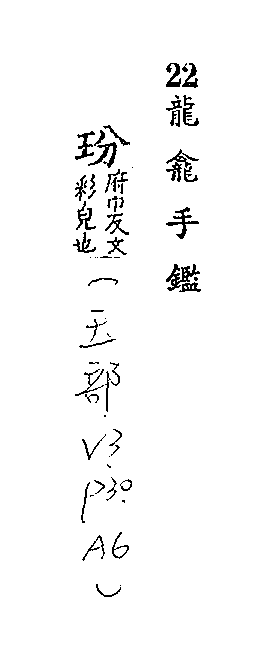 22龍龕手鑑
玢府巾反文彩皃也(玉部.V3.P30.A6)